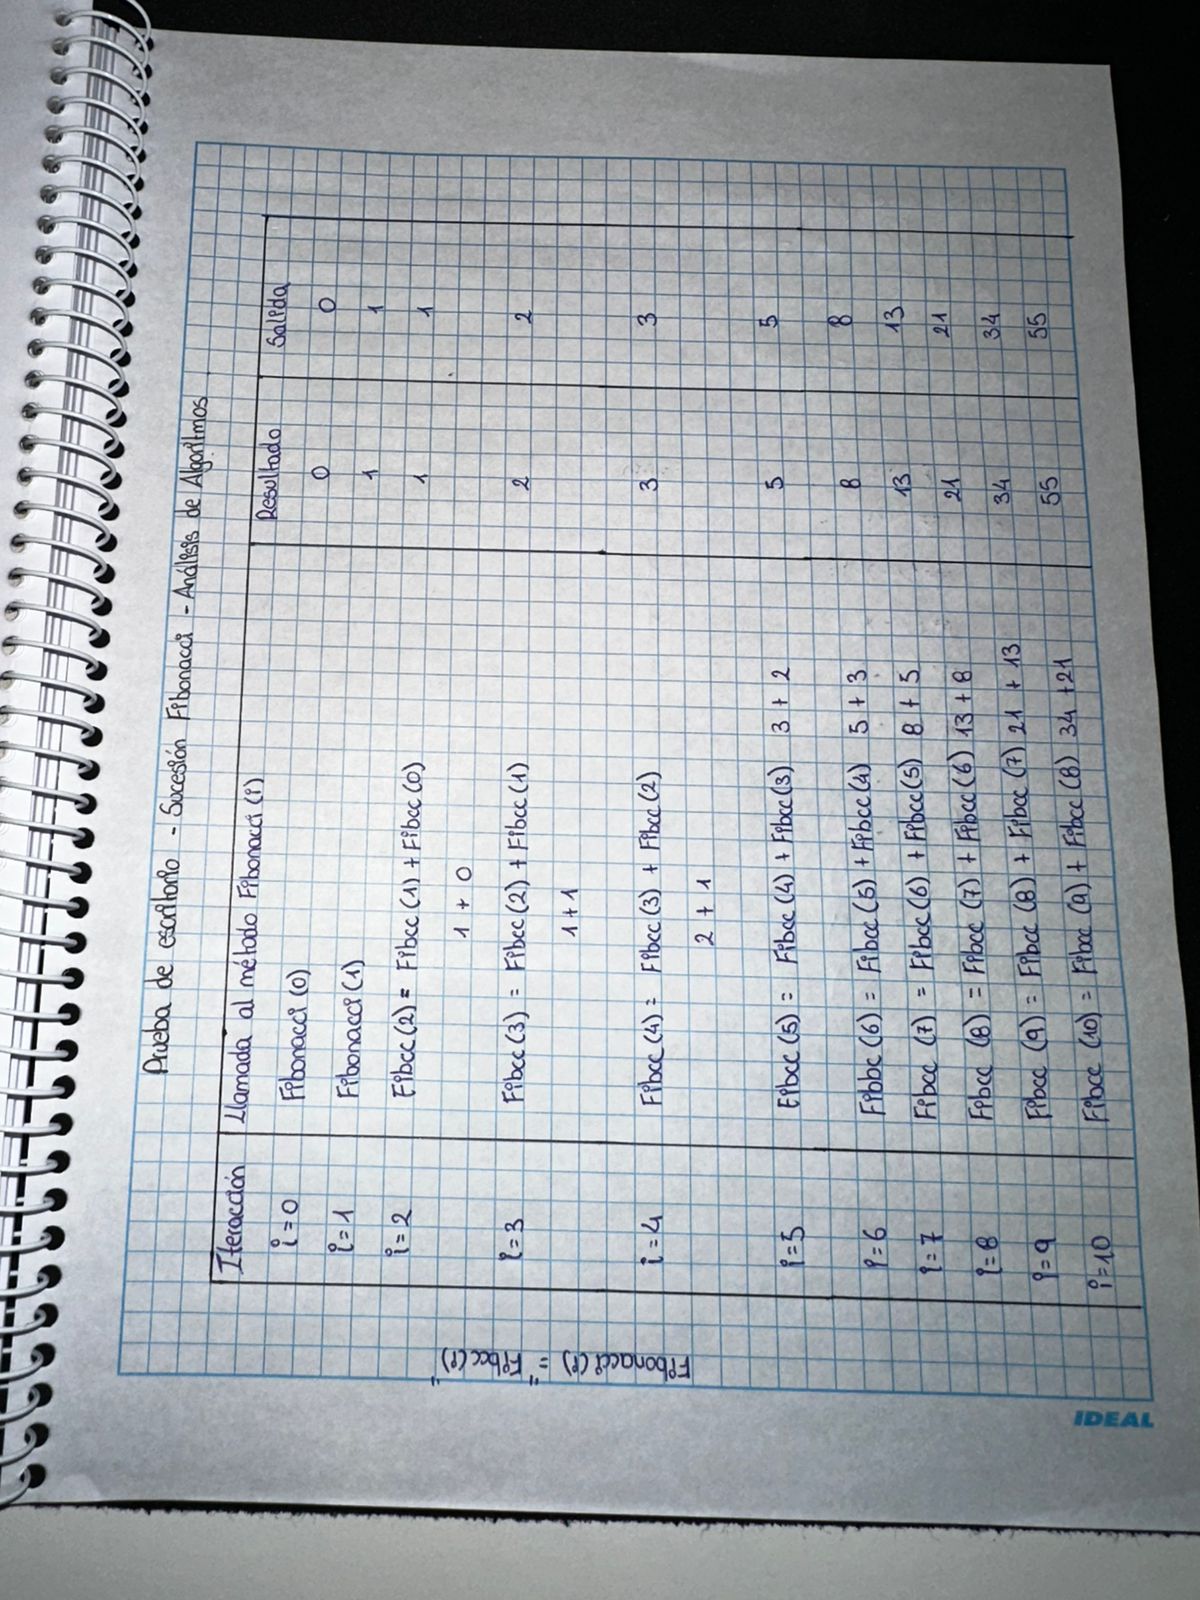 Prueba de escritorio - Sucesión Fibonacci - Análisis de Algoritmos
Iteracción Llamada al método Fibonacci (i) Resultado Salida
i=0 Fibonacci (0) 0 0
i=1 Fibonacci (1) 1 1
i=2 Fibcc (2) = Fibcc (1) + Fibcc (0) 1 1
1 + 0
i=3 Fibcc (3) = Fibcc (2) + Fibcc (1) 2 2
1+1
i=4 Fibcc (4) = Fibcc (3) + Fibcc (2) 3 3
2 + 1
i=5 Fibcc (5) = Fibcc (4) + Fibcc (3) 3 + 2 5 5
i=6 Fibbc (6) = Fibcc (5) + Fibcc (4) 5 + 3 8 8
i=7 Fibcc (7) = Fibcc (6) + Fibcc (5) 8 + 5 13 13
i=8 Fibcc (8) = Fibcc (7) + Fibcc (6) 13 + 8 21 21
i=9 Fibcc (9) = Fibcc (8) + Fibcc (7) 21 + 13 34 34
i=10 Fibcc (10) = Fibcc (9) + Fibcc (8) 34 +21 55 55
Fibonacci (i) = "Fibcc (i)"
IDEAL